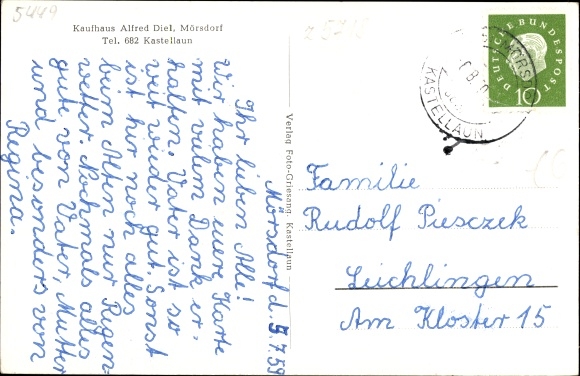 5449
Kaufhaus Alfred Diel, Mörsdorf
Tel. 682 Kastellaun
Mörsdorf d. 5.7.59
Ihr lieben Alle!
Wir haben eure Karte
mit vielem Dank er-
halten. Vater ist so
weit wieder gut. Sonst
ist hir noch alles
beim Alten nur Regen-
wetter. Nochmals alles
gute von Vater, Mutter
und besonders von
Regina.
Verlag Foto-Griesang, Kastellaun
DEUTSCHE BUNDESPOST
10
KASTELLAUN
Familie
Rudolf Piesczek
Leichlingen
Am Kloster 15